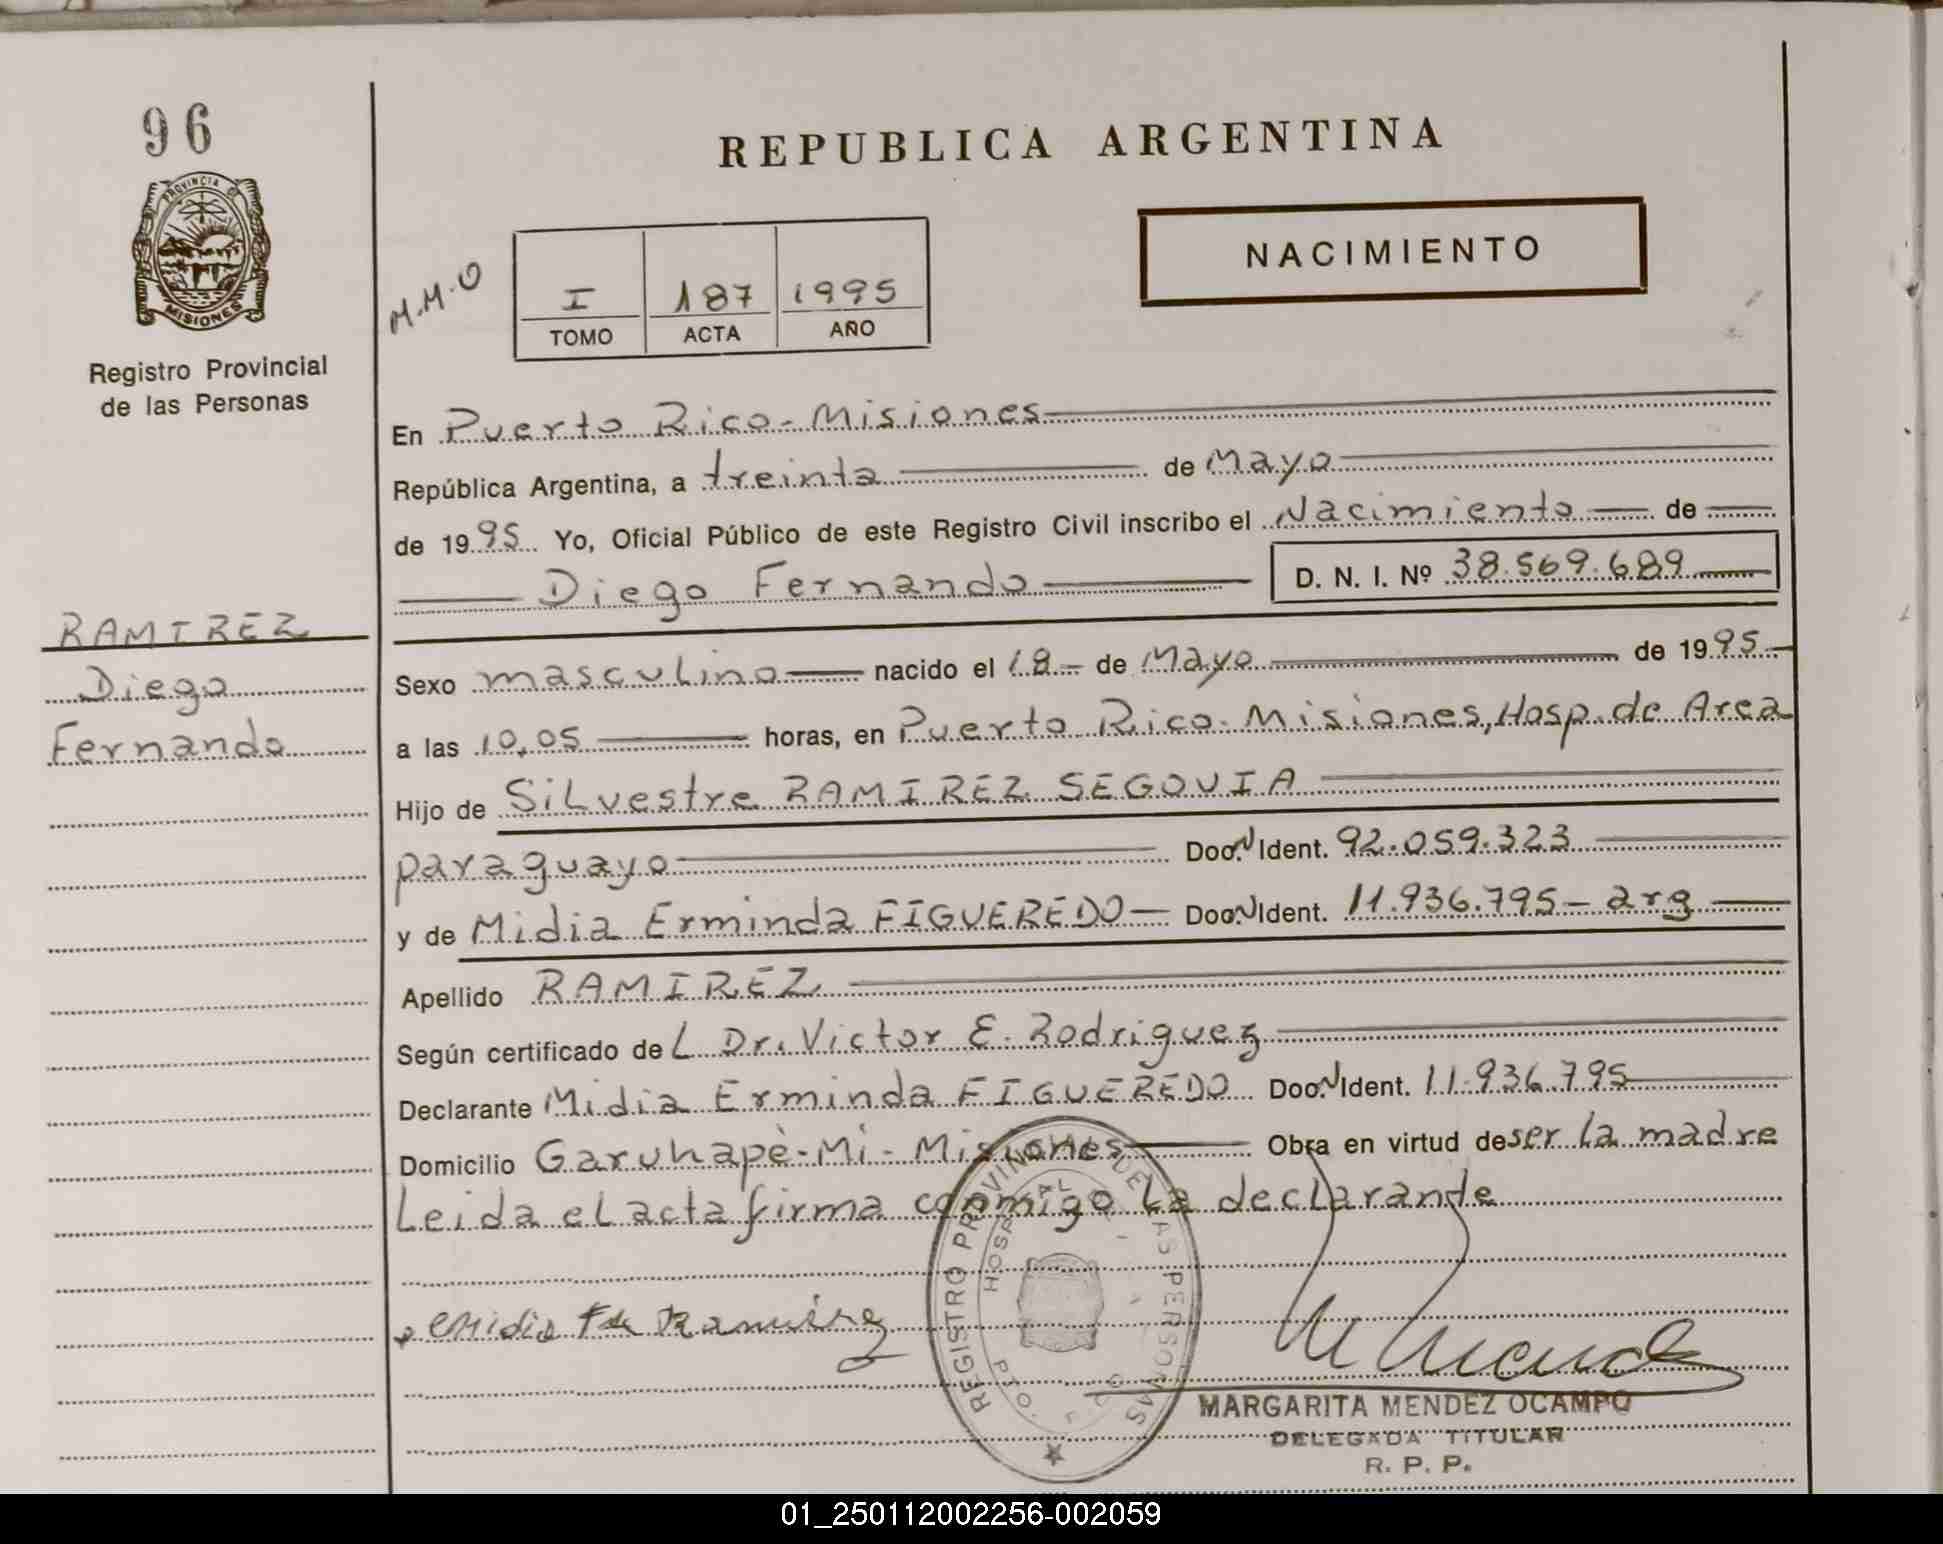 96
PROVINCIA D
MISIONES
Registro Provincial
de las Personas
RAMIREZ
Diego
Fernando
REPUBLICA ARGENTINA
NACIMIENTO
M.M.O
I 187 1995
TOMO ACTA AÑO
En Puerto Rico - Misiones
República Argentina, a treinta de Mayo
de 1995 Yo, Oficial Público de este Registro Civil inscribo el Nacimiento de
Diego Fernando D. N. I. Nº 38.569.689
Sexo masculino nacido el 18 de Mayo de 1995
a las 10,05 horas, en Puerto Rico - Misiones, Hosp. de Area
Hijo de Silvestre RAMIREZ SEGOVIA
paraguayo Doc. Ident. 92.059.323
y de Midia Erminda FIGUEREDO Doc. Ident. 11.936.795 - arg
Apellido RAMIREZ
Según certificado del Dr. Victor E. Rodriguez
Declarante Midia Erminda FIGUEREDO Doc. Ident. 11.936.795
Domicilio Garuhapè-Mì - Misiones Obra en virtud de ser la madre
Leida el acta firma conmigo la declarande
Midia F de Ramirez
REGISTRO PROVINCIAL DE LAS PERSONAS
HOSPITAL
PTO.
MARGARITA MENDEZ OCAMPO
DELEGADA TITULAR
R. P. P.
01_250112002256-002059